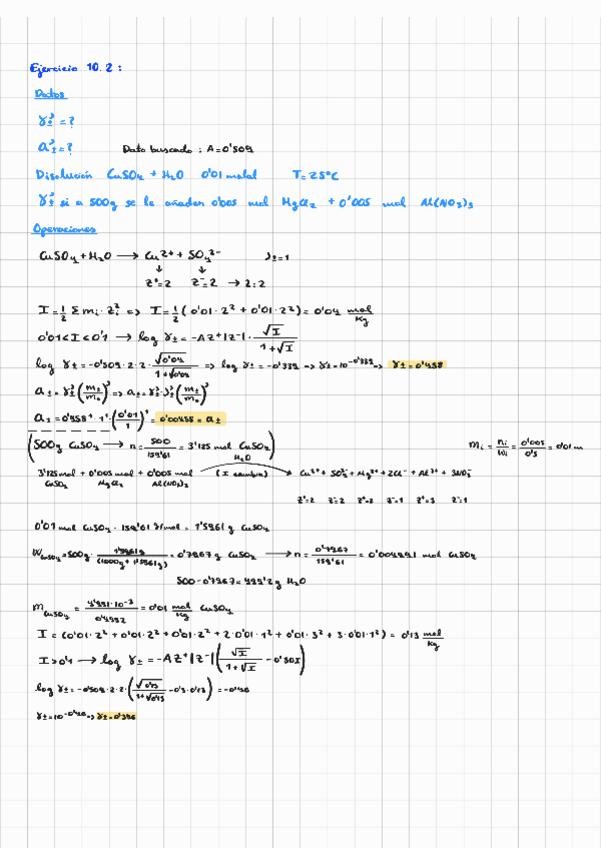 Ejercicio 10.2:
Datos
γ±? = ?
a±? = ?   Dato buscado: A=0'509
Disolución CuSO₄ + H₂O 0'01 molal   T=25ºC
γ±? si a 500g se le añaden 0'005 mol MgCl₂ + 0'005 mol Al(NO₃)₃
Operaciones
CuSO₄+H₂O → Cu²⁺ + SO₄²⁻   ν±=1
Z⁺=2   Z⁻=2 → 2:2
I=½ Σ mᵢ·zᵢ² => I=½(0'01·2²+0'01·2²)=0'04 mol/Kg
0'01<I<0'1 → log γ±=-AZ⁺|Z⁻|·√I/(1+√I)
log γ±=-0'509·2·2·√0'04/(1+√0'04) => log γ±=-0'339 → γ±=10^-0'339 → γ±=0'458
0'00458=a±
(500g CuSO₄ → n=500/159'61=3'125 mol CuSO₄)   mᵢ=nᵢ/wᵢ=0'005/0'5=0'01 m
H₂O
3'125mol+0'005mol+0'005mol → Cu²⁺+SO₄²⁻+Mg²⁺+2Cl⁻+Al³⁺+3NO₃⁻
CuSO₄   MgCl₂   Al(NO₃)₃   (I cambia)
Z=2 Z=2 Z=2 Z=1 Z=3 Z=1
0'01 mol CuSO₄·159'61 g/mol=1'5961g CuSO₄
W CuSO₄=500g·1'5961g/(1000g+1'5961g)=0'7967g CuSO₄ → n=0'7967/159'61=0'004991 mol CuSO₄
500-0'7967=499'2g H₂O
m CuSO₄=4'991·10⁻³/0'4992=0'01 mol/Kg CuSO₄
I=(0'01·2²+0'01·2²+0'01·2²+2·0'01·1²+0'01·3²+3·0'01·1²)=0'13 mol/Kg
I>0'1 → log γ±=-AZ⁺|Z⁻|(√I/(1+√I)-0'30I)
log γ±=-0'509·2·2·(√0'13/(1+√0'13)-0'3·0'13)=-0'46
γ±=10^-0'46